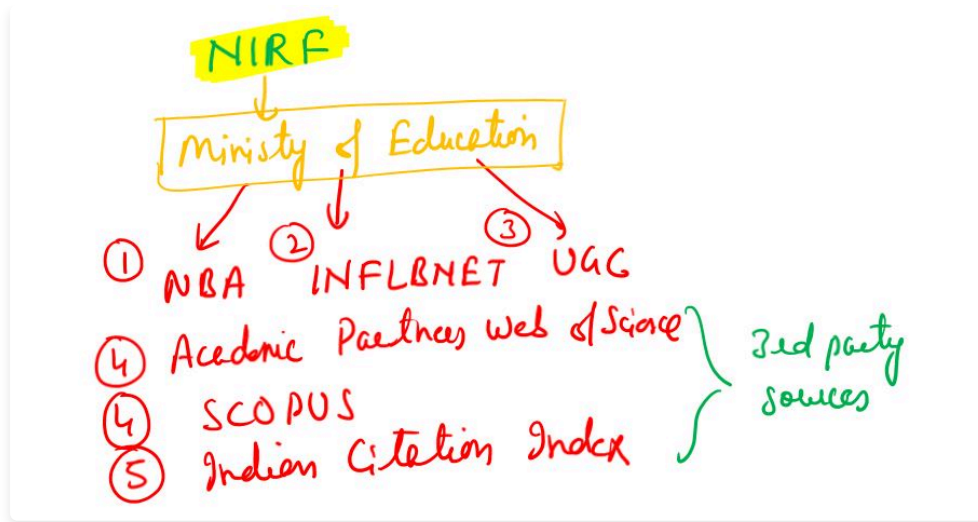 NIRF
Ministy of Education
① NBA ② INFLBNET ③ UGC
④ Academic Partners Web of Science
④ SCOPUS
⑤ Indian Citation Index
3rd party
sources